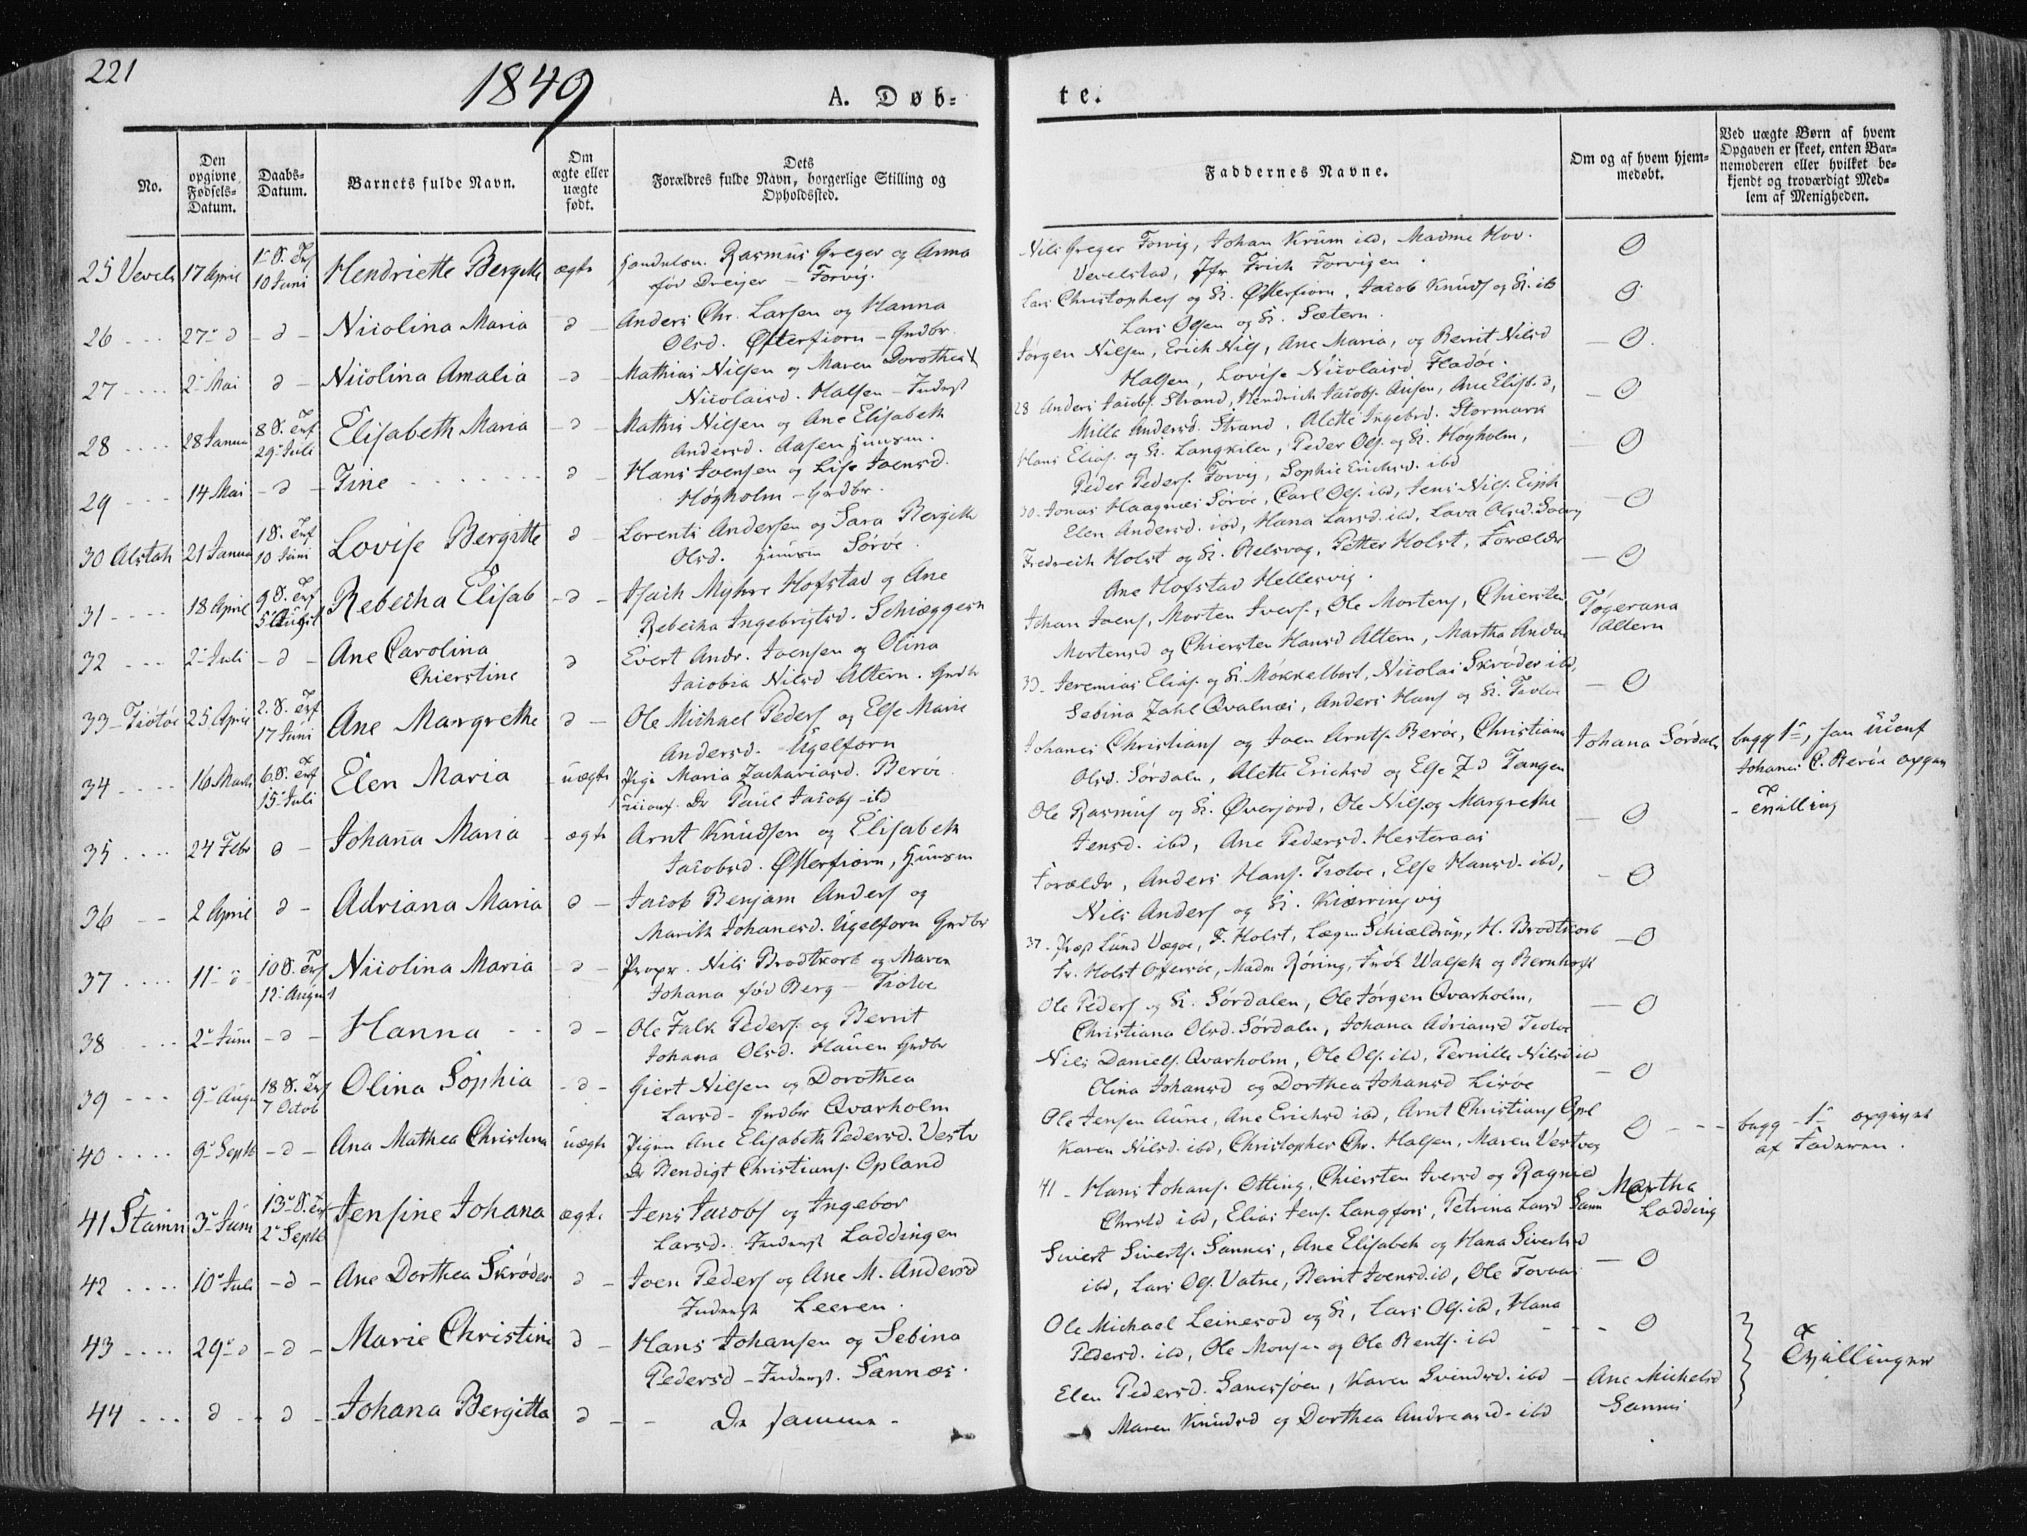 221
1849
A. Døb-
te.
No.
Den opgivne Fødsels-Datum.
Daabs-Datum.
Barnets fulde Navn.
Om ægte eller uægte født.
Dets Forældres fulde Navn, borgerlige Stilling og Opholdssted.
Faddernes Navne.
Om og af hvem hjemmedøbt.
Ved uægte Børn af hvem Opgaven er skeet, enten Barnemoderen eller hvilket bekjendt og troværdigt Medlem af Menigheden.
25 Vevels 17 April 10 Juni Hendriette Bergitte ægte Rasmus Greger og Anna
fød Dreijer - Forvig.
Nils Greger Forvig, Johan Krum ibd, Madme Hov.
Vevelstad, Jfr Frich Forvigen. O
26 27 d - d - Nicolina Maria d - Anders Chr. Larsen og Hanna
Olsd. Østerfiorn - Grdbr.
Lars Christophers og K. Østerfiorn, Jacob Knuds og K. ib
Lars Olsen og K. Sætern. O
27 2 Mai d - Nicolina Amalia - d - Mathias Nilsen og Maren Dorothea
Nicolaisd. Halsen - Inderst
Jørgen Nilsen, Erich Nils, Ane Maria, og Berit Nilsd
Halsen, Lovise Nicolaisd Fladøe. O
28 28 Janua 8 S. Trf 29 Juli Elisabeth Maria - d - Mathis Nilsen og Ane Elisabeth
Andersd. Aasen Huusm.
28 Anders Jacobs. Strand, Hendrich Jacobs. Aasen, Ane Elisb. d,
Milla Andersd. Strand, Alette Ingebrd. Stormark O
29 14 Mai - d - Tine d - Hans Joensen og Lise Joensd.
Høgholm - Grdbr.
Hans Elias. og K. Langkilen, Peder Ols. og K. Høgholm,
Peder Peders. Forvig, Sophie Erichsd. ibd O
30 Alstah 21 Janua 1 S. Trf 10 Juni Lovise Bergitte d - Lorents Andersen og Sara Bergitte
Olsd. Huusm Sørøe
30 - Jonas Haagnæs Sørøe, Carl Ols. ibd, Jens Nils.
Elen Andersd. ibd, Hana Larsd. ibd, Lava Olsd. O
31 18 April 9 S. Trf 5 August Rebecha Elisab - d - Isach Myhre Hofstad og Ane
Rebecha Ingebrigtsd. Schiæggesn
Fredrich Holst og K. Belsvog, Petter Holst, Forældr
Ane Hofstad Hellesvig. O
32 2 Juli - d - Ane Carolina
Chierstine d Evert Andr. Joensen og Olina
Jacobia Nilsd Altern. Grdbr
Johan Joens, Morten Ivers., Ole Mortens, Chiersten
Mortensd og Chiersten Hansd Altern, Martha
Tøgerana
Altern
33 - Tiøtøe 25 April 2. S. Trf 17 Juni Ane Margrethe d - Ole Michael Peders og Else Marie
Andersd. Ugelforn
33 - Jeremias Elias. og K. Møkkelbost, Nicolai Skrøder ibd,
Sebina Zahl Qvalnæs, Anders Hans og K. Tiotøe O
34 16 Marts 6. S. Trf 15 Juli Elen Maria - uægte Pige Maria Zachariasd. Berøe
Dr Paul Jacobs - ibd
Johanes Christians og Joen Arnts. Berøe, Christiana
Olsd. Sørdalen, Alette Erichsd og Else Z d Tangen
Johana Sørdaln
begg 1e,
Johanes C. Berøe opgav
35 24 Febr d - Johana Maria - ægte Arnt Knudsen og Elisabeth
Jacobsd. Østerfiorn, Huusm
Ole Rasmus og K. Øverjord, Ole Nils og Margrethe
Jensd. ibd, Ane Pedersd. Hesteraas O
- Tvilling
36 2 April d - Adriana Maria d - Jacob Benjam Anders og
Marith Johanesd. Ugelforn Grdbr
Forældr, Anders Hans. Tiotøe, Else Hansd. ibd,
Nils Anders og K. Kiærringvig O
37 11 d 10 S. Trf 12 August Nicolina Maria - d - Propr. Nils Brodtkorb og Maren
Johana fød Berg - Tiotøe
37 - Prøp Lund Vægøe, F. Holst, Læge Schieldrup, H. Brodtkorb
Fr. Holst Offersøe, Madm Røring, Frøk Walseth og Bernhoft O
38 2 Juni - d - Hanna d - Ole Falk Peders. og Berit
Johana Olsd. Hauen Grdbr
Ole Peders og K. Sørdalen, Ole Jørgen Qvarholm,
Christiana Olsd. Sørdaln, Johana Adriansd Tiotøe O
39 9 Augu 18 S. Trf 7 Octob Olina Sophia - d - Giert Nilsen og Dorothea
Larsd - Grdbr Qvarholm
Nils Daniels. Qvarholm, Ole Ols. ibd, Pernille Nilsd ibd
Olina Johansd og Dorthea Johansd Lisøe O
40 9 Septb - d - Ana Mathea Christina uægte Pigen Ane Elisabeth Pedersd. Vestv
Dr Bendigt Christians. Opland
Ole Jensen Aune, Ane Erichsd ibd, Arnt Christians Opl
Karen Nilsd. ibd, Christopher Chr. Halsen, Maren Vestvog O
begg - 1e opgivet
af Faderen.
41 Stamn 3 Juni 13 S. Trf 2 Septb Jensine Johana ægte Jens Jacobs og Ingebor
Larsd. Inderst Laddingen
41 - Hans Johans. Otting, Chiersten Iversd og Ragnild
Chrstd ibd, Elias Jens. Langfors, Petrina Larsd Sann
Martha
Ladding
42 10 Juli - d - Ane Dorthea Skrøder d - Joen Peders og Ane M. Andersd
Inderst Leeren.
Sivert Siverts. Sannes, Ane Elisabeth og Hana Sivertsd
ibd, Lars Ols. Vatne, Berit Joensd. ibd, Ole Tovaas O
43 29 d - d - Marie Christine d - Hans Johansen og Sebina
Pedersd - Inderst. Sannæs.
Ole Michael Leinesod og K, Lars Ols. ibd, Hana
Pedersd. ibd, Ole Monsen og Ole Bents. ibd O
Tvillinger
44 d - d - Johana Bergitta d - De samme -
Elen Pedersd. Sanesjøen, Karen Svindsd. ibd
Maren Knudsd og Dorthea Andreasd. ibd
Ane Michelsd
Sannes